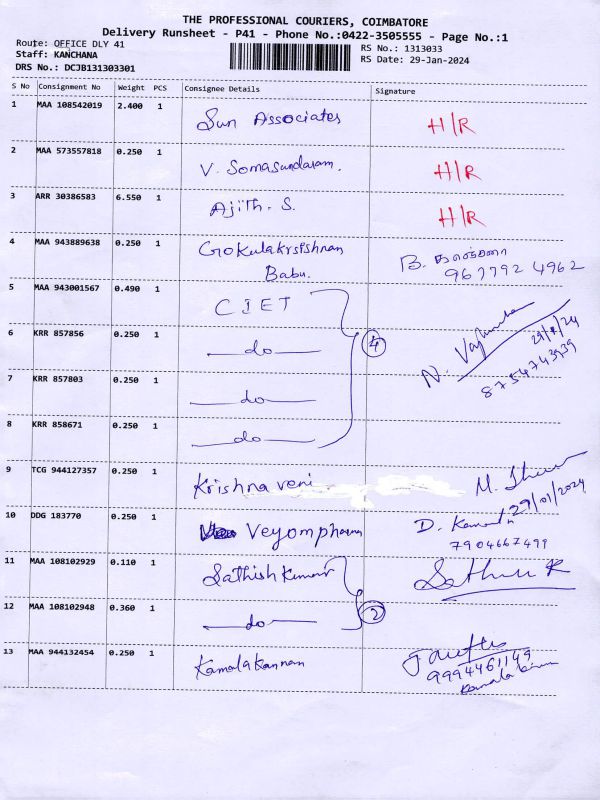 THE PROFESSIONAL COURIERS, COIMBATORE
Delivery Runsheet - P41 - Phone No.:0422-3505555 - Page No.:1
Route: OFFICE DLY 41 RS No.: 1313033
Staff: KANCHANA RS Date: 29-Jan-2024
DRS No.: DCJB131303301
S No Consignment No Weight PCS Consignee Details Signature
1 MAA 108542019 2.400 1 Sun Associates H/R
2 MAA 573557818 0.250 1 V. Somasundaram. H/R
3 ARR 30386583 6.550 1 Ajith. S. H/R
4 MAA 943889638 0.250 1 Gokulakrsishnan B.
Babu. 967792 4962
5 MAA 943001567 0.490 1 CIET
6 KRR 857856 0.250 1 do 4 N.
7 KRR 857803 0.250 1 do 8754743939
8 KRR 858671 0.250 1 do
9 TCG 944127357 0.250 1 Krishnaveni M.
29/01/2024
10 DDG 183770 0.250 1 Veyompharma D.
7904667499
11 MAA 108102929 0.110 1 Sathishkumar
12 MAA 108102948 0.360 1 do 2
13 MAA 944132454 0.250 1 Kamalakannan
9994461149